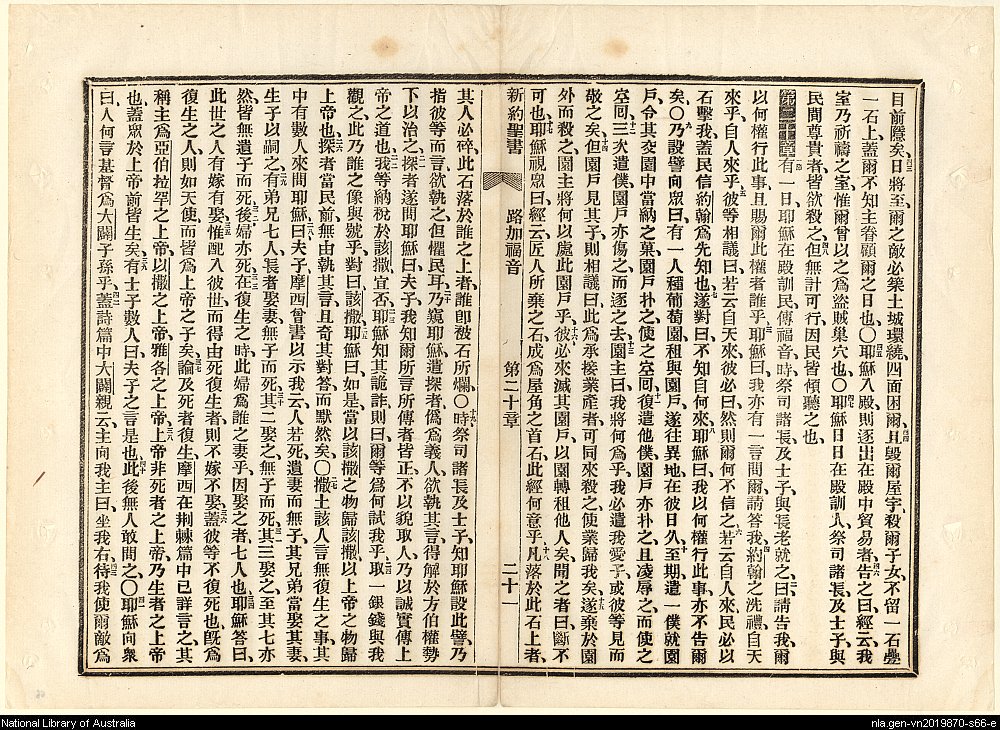 目前隱矣日將至爾之敵必築土城環繞四面困爾且毀爾屋宇殺爾子女不留一石疊
一石上蓋爾不知主眷顧爾之日也〇耶穌入殿則逐出在殿中貿易者告之曰經云我
室乃祈禱之室惟爾曾以之為盜賊巢穴也〇耶穌日日在殿訓人祭司諸長及士子與
民間尊貴者皆欲殺之但無計可行因民皆傾聽之也
第二十章有一日耶穌在殿訓民傳福音時祭司諸長及士子與長老就之曰請告我爾
以何權行此事且賜爾此權者誰乎耶穌曰我亦有一言問爾請答我約翰之洗禮自天
來乎自人來乎彼等相議曰若云自天來彼必曰然則爾何不信之若云自人來民必以
石擊我蓋民信約翰為先知也遂對曰不知自何來耶穌曰我以何權行此事亦不告爾
矣〇乃設譬向眾曰有一人種葡萄園租與園戶遂往異地在彼日久至期遣一僕就園
戶令其交園中當納之菓園戶扑之使之空囘復遣他僕園戶亦扑之且凌辱之而使之
空囘三次遣僕園戶亦傷之而逐之去園主曰我將何為乎我必遣我愛子或彼等見而
敬之矣但園戶見其子則相議曰此為承接業產者可同來殺之使業歸我矣遂棄於園
外而殺之園主將何以處此園戶乎彼必來滅其園戶以園轉租他人矣聞之者曰斷不
可也耶穌視眾曰經云匠人所棄之石成為屋角之首石此經何意乎凡落於此石上者
新約聖書 路加福音 第二十章 二十一
其人必碎此石落於誰之上者誰卽被石所爛〇時祭司諸長及士子知耶穌設此譬乃
指彼等而言欲執之但懼民耳乃窺耶穌遣探者僞為義人欲執其言得解於方伯權勢
下以治之探者遂問耶穌曰夫子我知爾所言所傳者皆正不以貌取人乃以誠實傳上
帝之道也我等納稅於該撒宜否耶穌知其詭詐則曰爾等為何試我乎取一銀錢與我
觀之此乃誰之像與號乎對曰該撒耶穌曰如是當以該撒之物歸該撒以上帝之物歸
上帝也探者當民前無由執其言且奇其對答而默然矣〇撒土該人言無復生之事其
中有數人來問耶穌曰夫子摩西曾書以示我云人若死遺妻而無子其兄弟當娶其妻
生子以嗣之有弟兄七人長者娶妻無子而死其二娶之無子而死其三娶之至其七亦
然皆無遺子而死後婦亦死在復生之時此婦為誰之妻乎因娶之者七人也耶穌答曰
此世之人有嫁有娶惟配入彼世而得由死復生者則不嫁不娶蓋彼等不復死也旣為
復生之人則如天使而皆為上帝之子矣論及死者復生摩西在荆棘篇中已詳言之其
稱主為亞伯拉罕之上帝以撒之上帝雅各之上帝上帝非死者之上帝乃生者之上帝
也蓋眾於上帝前皆生矣有士子數人曰夫子之言是也此後無人敢問之〇耶穌向衆
曰人何言基督為大闢子孫乎蓋詩篇中大闢親云主向我主曰坐我右待我使爾敵為
National Library of Australia
nla.gen-vn2019870-s66-e